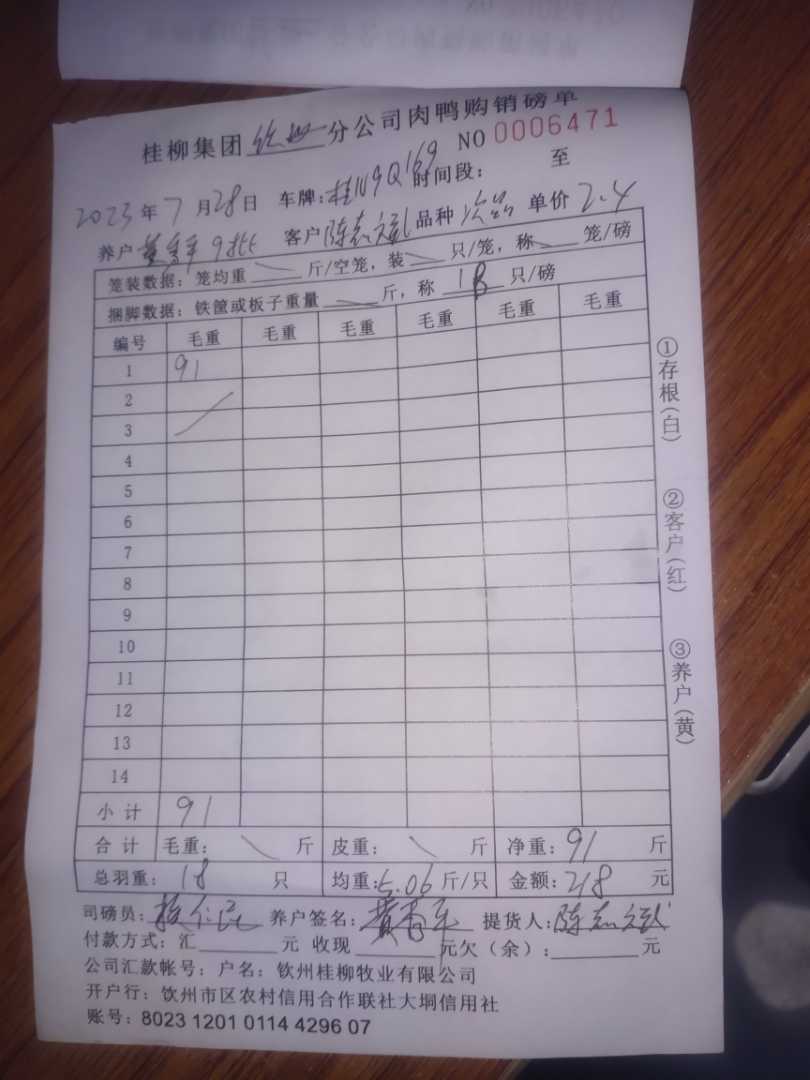 桂柳集团钦州分公司肉鸭购销磅单
NO 0006471
2023年7月28日 车牌:桂N9Q169 时间段: 至
养户 9批 客户 陈志斌 品种 次品 单价 2.4
笼装数据: 笼均重 斤/空笼, 装 只/笼, 称 笼/磅
捆脚数据: 铁筐或板子重量 斤, 称 18 只/磅
编号 毛重 毛重 毛重 毛重 毛重 毛重
1 91
2
3
4
5
6
7
8
9
10
11
12
13
14
小计 91
合计 毛重: 斤 皮重: 斤 净重: 91 斤
总羽重: 18 只 均重: 5.06 斤/只 金额: 218 元
司磅员: 养户签名: 提货人: 陈志斌
付款方式: 汇 元 收现 元欠(余): 元
公司汇款帐号: 户名: 钦州桂柳牧业有限公司
开户行: 钦州市区农村信用合作联社大垌信用社
账号: 8023 1201 0114 4296 07
①存根(白)
②客户(红)
③养户(黄)